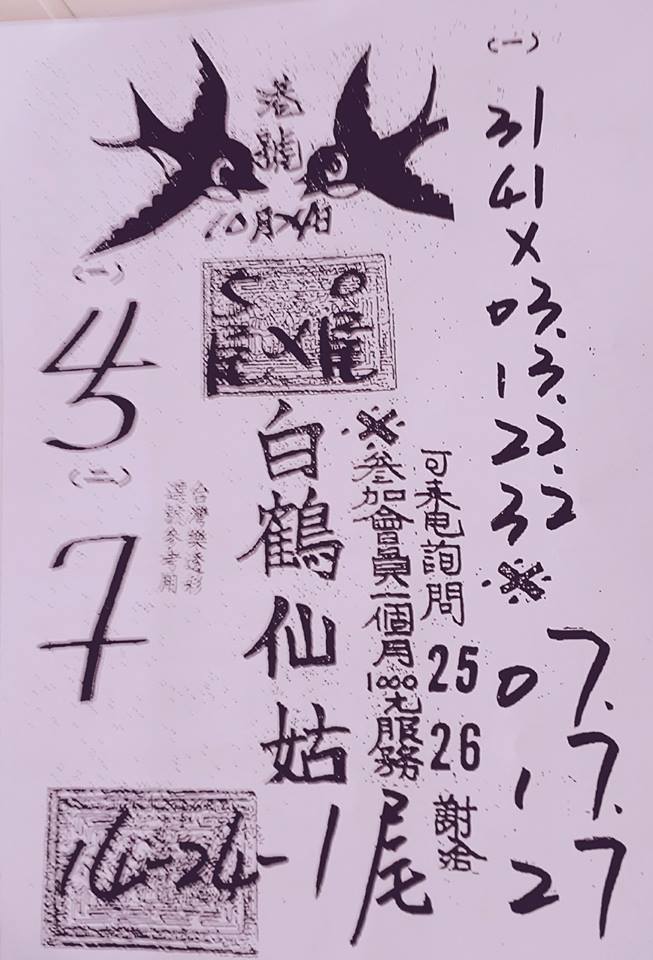 港號
10月
(一)
31
41
×
03.
13.
22.
32
※
07.
17.
27
可來电詢問
25
26
謝洽
※參加會員一個月1000元服務
白鶴仙姑
台灣樂透彩
(一)
45
(二)
7
14-24-1尾